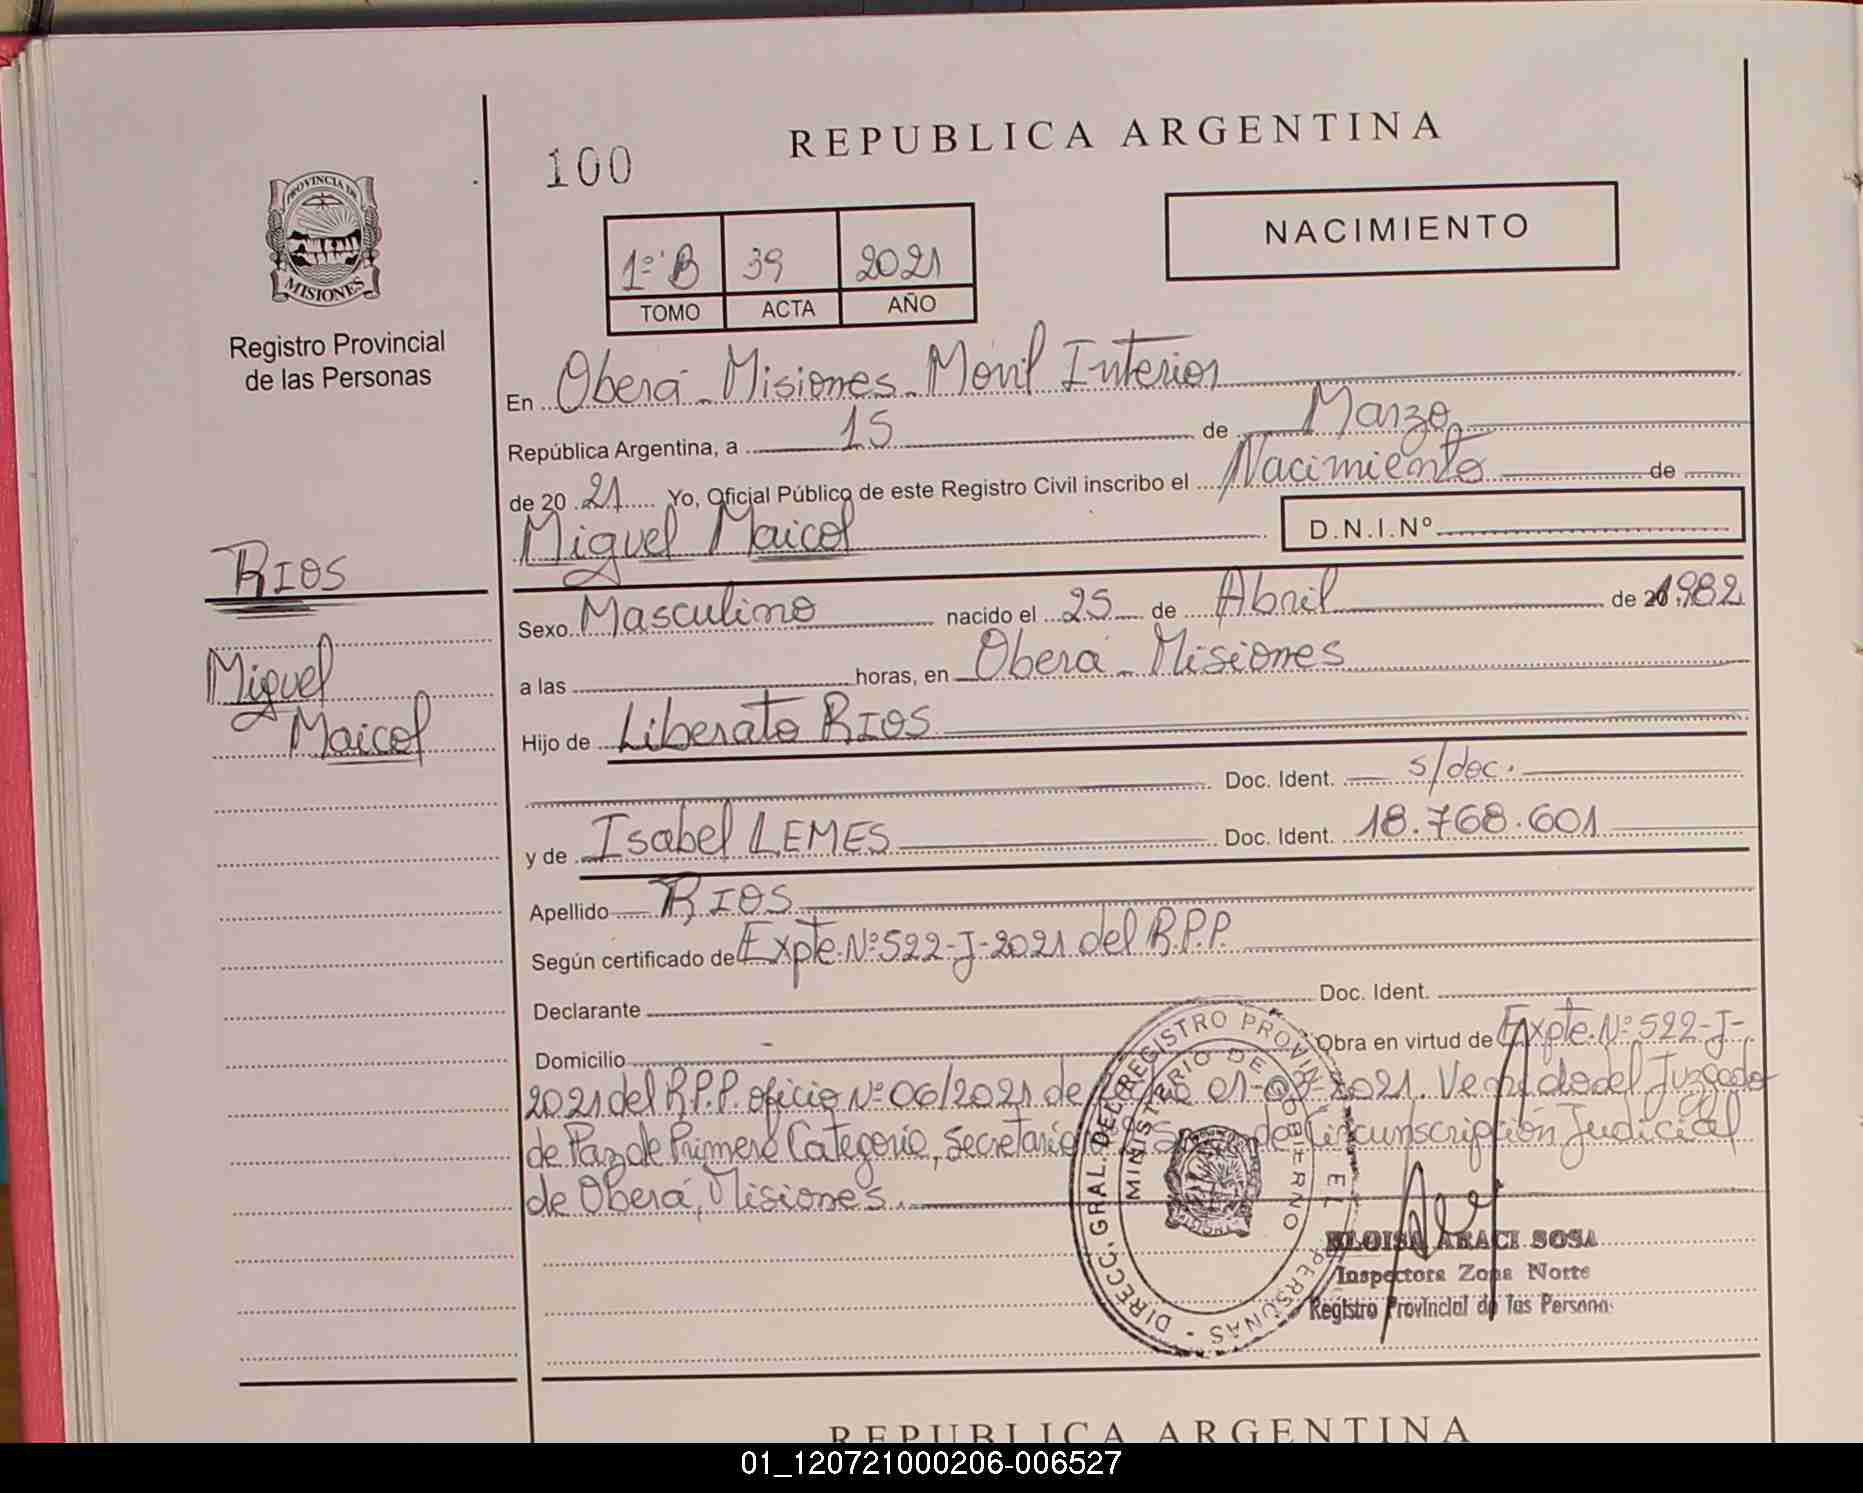 REPUBLICA ARGENTINA
100
NACIMIENTO
PROVINCIA DE
MISIONES
Registro Provincial
de las Personas
1º B 39 2021
TOMO ACTA AÑO
En Oberá - Misiones - Móvil Interior
República Argentina, a 15 de Marzo
de 20 21 Yo, Oficial Público de este Registro Civil inscribo el Nacimiento de
Miguel Maicol D.N.I.Nº
RIOS
Miguel
Maicol
Sexo Masculino nacido el 25 de Abril de 1982
a las horas, en Oberá - Misiones
Hijo de Liberato RIOS
Doc. Ident. s/doc.
y de Isabel LEMES Doc. Ident. 18.768.601
Apellido RIOS
Según certificado de Expte. Nº 522-J-2021 del R.P.P.
Declarante Doc. Ident.
Domicilio Obra en virtud de Expte. Nº 522-J-
2021 del R.P.P. oficio Nº 06/2021 de 01-03-2021. Venido del Juzgado
de Paz de Primera Categoría, Secretaría de Circunscripción Judicial
de Oberá, Misiones.
DIRECC. GRAL. DEL REGISTRO PROVIN PERSONAS
MINISTERIO DE GOBIERNO
ELOISA ARACI SOSA
Inspectora Zona Norte
Registro Provincial de las Personas
REPUBLICA ARGENTINA
01_120721000206-006527